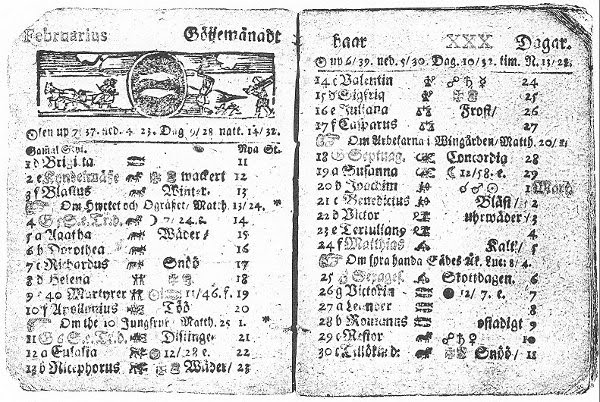 Februarius Göijemånadt
Solen up 7/37. ned. 4. 23. Dag 9/28 natt. 14/32.
Gamal Styl. Nya St.
1 d Brigitta 11
2 e Kyndelmässe wackert 12
3 f Blasius Winter. 13
Om Hwetet och Ogräset/ Matth. 13/24.
4 G 5 S. e. T. D. 7/24. e. 14
5 a Agatha Wäder/ 15
6 b Dorothea 16
7 c Richardus Snöö 17
8 d Helena 18
9 e 40 Martyrer 11/46. f. 19
10 f Apollonius Töö 20
Om the 10 Jungfrur Matth. 25 1.
11 G 6 S. e. T. D. 21
12 a Eulalia 12/28 e. 22
13 b Nicephorus Wäder/ 23
haar XXX Dagar.
up 6/39. ned. 5/30. Dag. 10/32. tim. N. 13/28.
14 c Valentin 24
15 d Sigfrid 25
16 e Juliana Frost/ 26
17 f 27
Om Arbetarna i Wingården/ Matth. 20/1.
18 G Septuag. Concordia 28
19 a Susanna 12/58. e. 29
20 b Joachim 1 Mart.
21 c Benedictus Bläst/ 2
22 d Victor uhrwäder/ 3
23 e 4
24 f Matthias Kalt/ 5
Om fyra handa Sädes Åk. Luc. 8/4.
25 G Sexages. Skottdagen. 6
26 g Victorin 12/7. e. 7
27 a Leander 8
28 b Romanus ostadigt 9
29 c Nestor 10
30 c Snöö/ 11